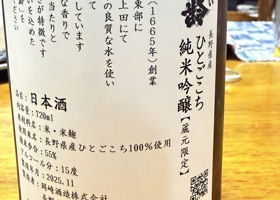 長野県産
ひとごこち
純米吟醸
【蔵元限定】
東部に
上田にて
(1665年)創業
の良質な水を使い
しています
な香りで
当たりと
さが特徴です
いを込めた
品目:日本酒
内容量:720ml
原材料名:米・米麹
原料米:長野県産ひとごこち100%使用
精米歩合:55%
アルコール分:15度
製造年月:2025.11
岡崎酒造株式会社